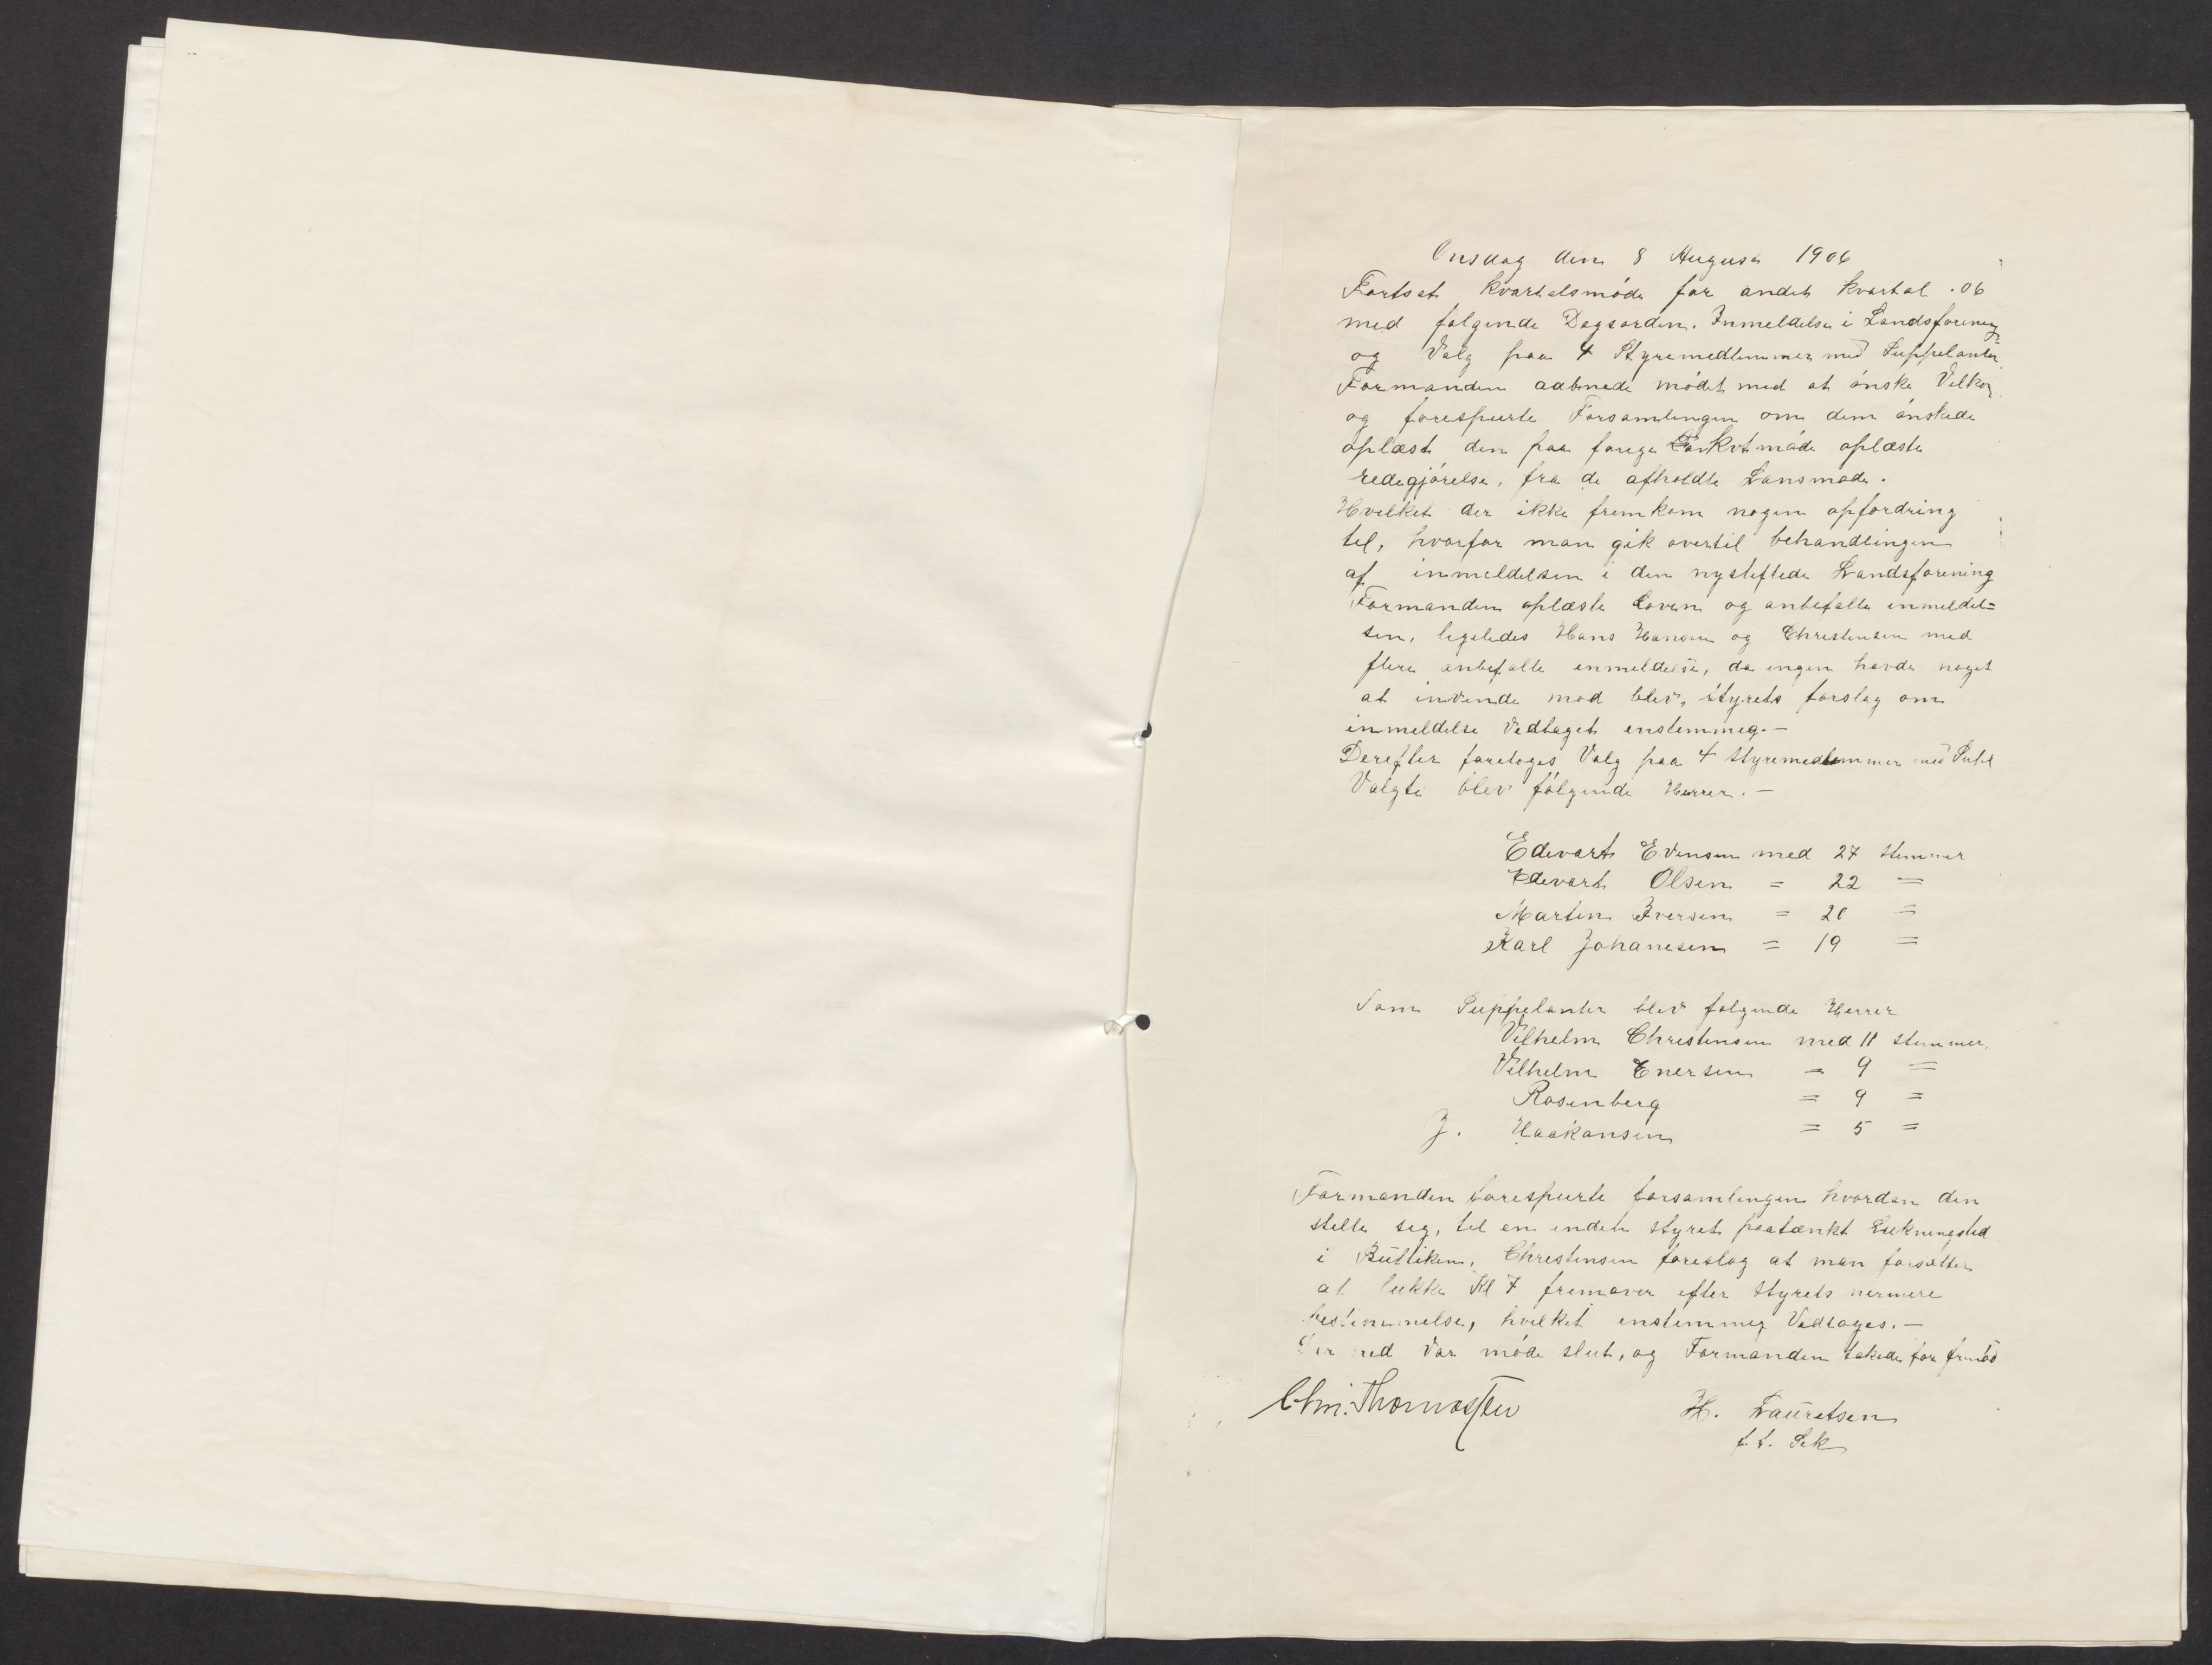 Onsdag den 8 August 1906
Fortsat kvartalsmöde for andet kvartal .06
med følgende Dagsorden. Inmeldelse i Landsforening
og Valg paa 4 Styremedlemmer med Suppelanter
Formanden aabnede mödet med at önske Velkom
og forespurte Forsamlingen om dem önskede
oplæst den paa forege Kvtmøde oplæste
redegjörelse, fra de afholdte Lansmøde.
Hvilket der ikke fremkom nogen opfordring
til, hvorfor man gik overtil behandlingen
af inmeldelsen i den nystiftede Landsforening
Formanden oplæste Loven og anbefalte inmeldel=
sen, ligeledes Hans Hansen og Christensen med
flere anbefalte inmeldelse, da ingen havde noget
at invende mod blev, styrets forslag om
inmeldelse Vedtaget enstemmeg.—
Derefter foretoges Valg paa 4 styremedlemmer med Supl
Valgte blev fölgende Herrer.—
Edevart Evensen med 27 stemmer
Edevart Olsen = 22 =
Martin Iversen = 20 =
Karl Johanesen = 19 =
Som Suppelanter blev følgende Herrer
Vilhelm Christensen med 11 stemmer,
Vilhelm Enersen = 9 =
Rosenberg = 9 =
J. Haakonsen = 5 =
Formanden forespurte forsamlingen hvordan den
stelle seg, til en inden styret paatænkt Lukningsted
i Butliken, Christensen foreslog at man forsætter
at lukke Kl 7 fremover efter styrets nermere
bestemmelse, hvilket enstemmeg Vedtoges.—
Der med Var möde slut, og Formanden takede for fremöd
Chr. Thomassen
H. Lauretsen
f.t. Sek